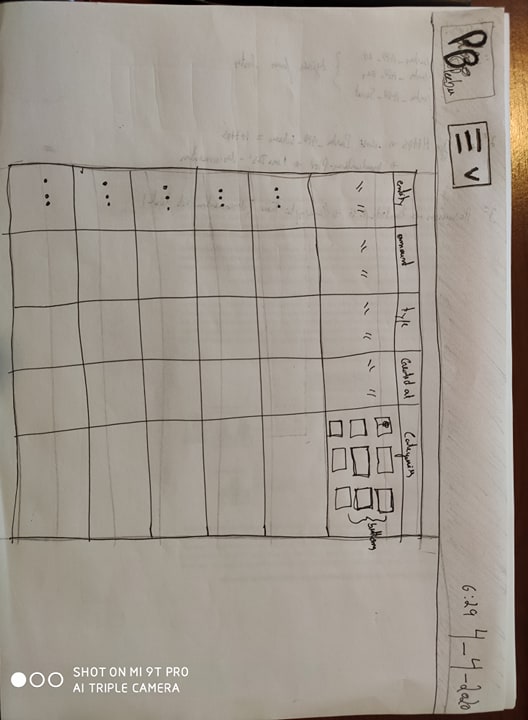 PB
Peebu
V
6:29 4-4-2020
entity amount type Created at Categories
" " " " " " " "
buttons
...
...
...
...
...
SHOT ON MI 9T PRO
AI TRIPLE CAMERA